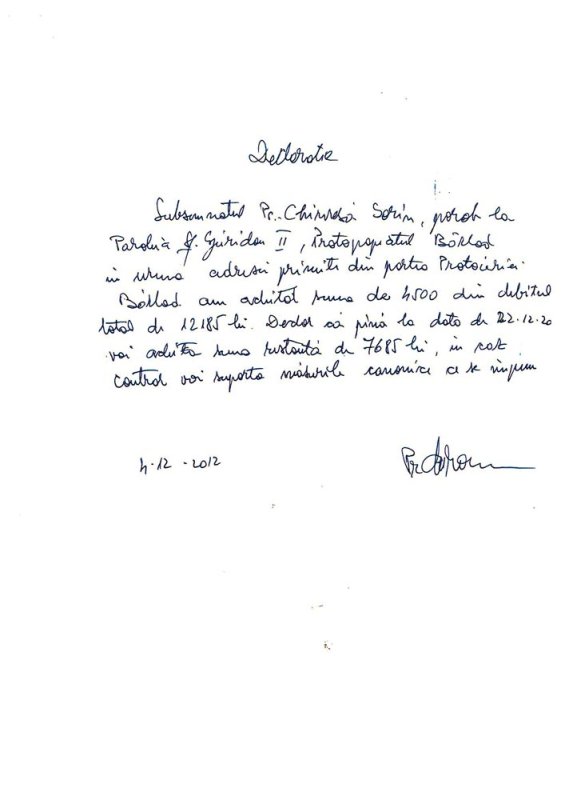 Declaratie
Subsemnatul Pr. Chirvasă Sorin, paroh la
Parohia Sf. Spiridon II, Protopopiatul Bârlad
în urma adresei primite din partea Protoieriei
Bârlad am achitat suma de 4500 din debitul
total de 12185 lei. Declar că pînă la data de 22.12.20
voi achita suma restantă de 7685 lei, în caz
contrar voi suporta măsurile canonice ce se impun
4.12.2012
Pr